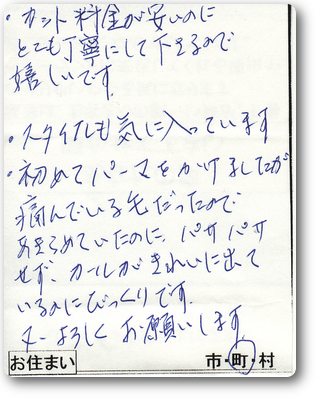 ・カット料金が安いのに
とても丁寧にして下さるので
嬉しいです。
・スタイルも気に入っています
・初めてパーマをかけましたが
痛んでいる毛だったので
あきらめていたのに、パサパサ
せず、カールがきれいに出て
いるのにびっくりです。
又、よろしくお願いします
お住まい 市・町・村